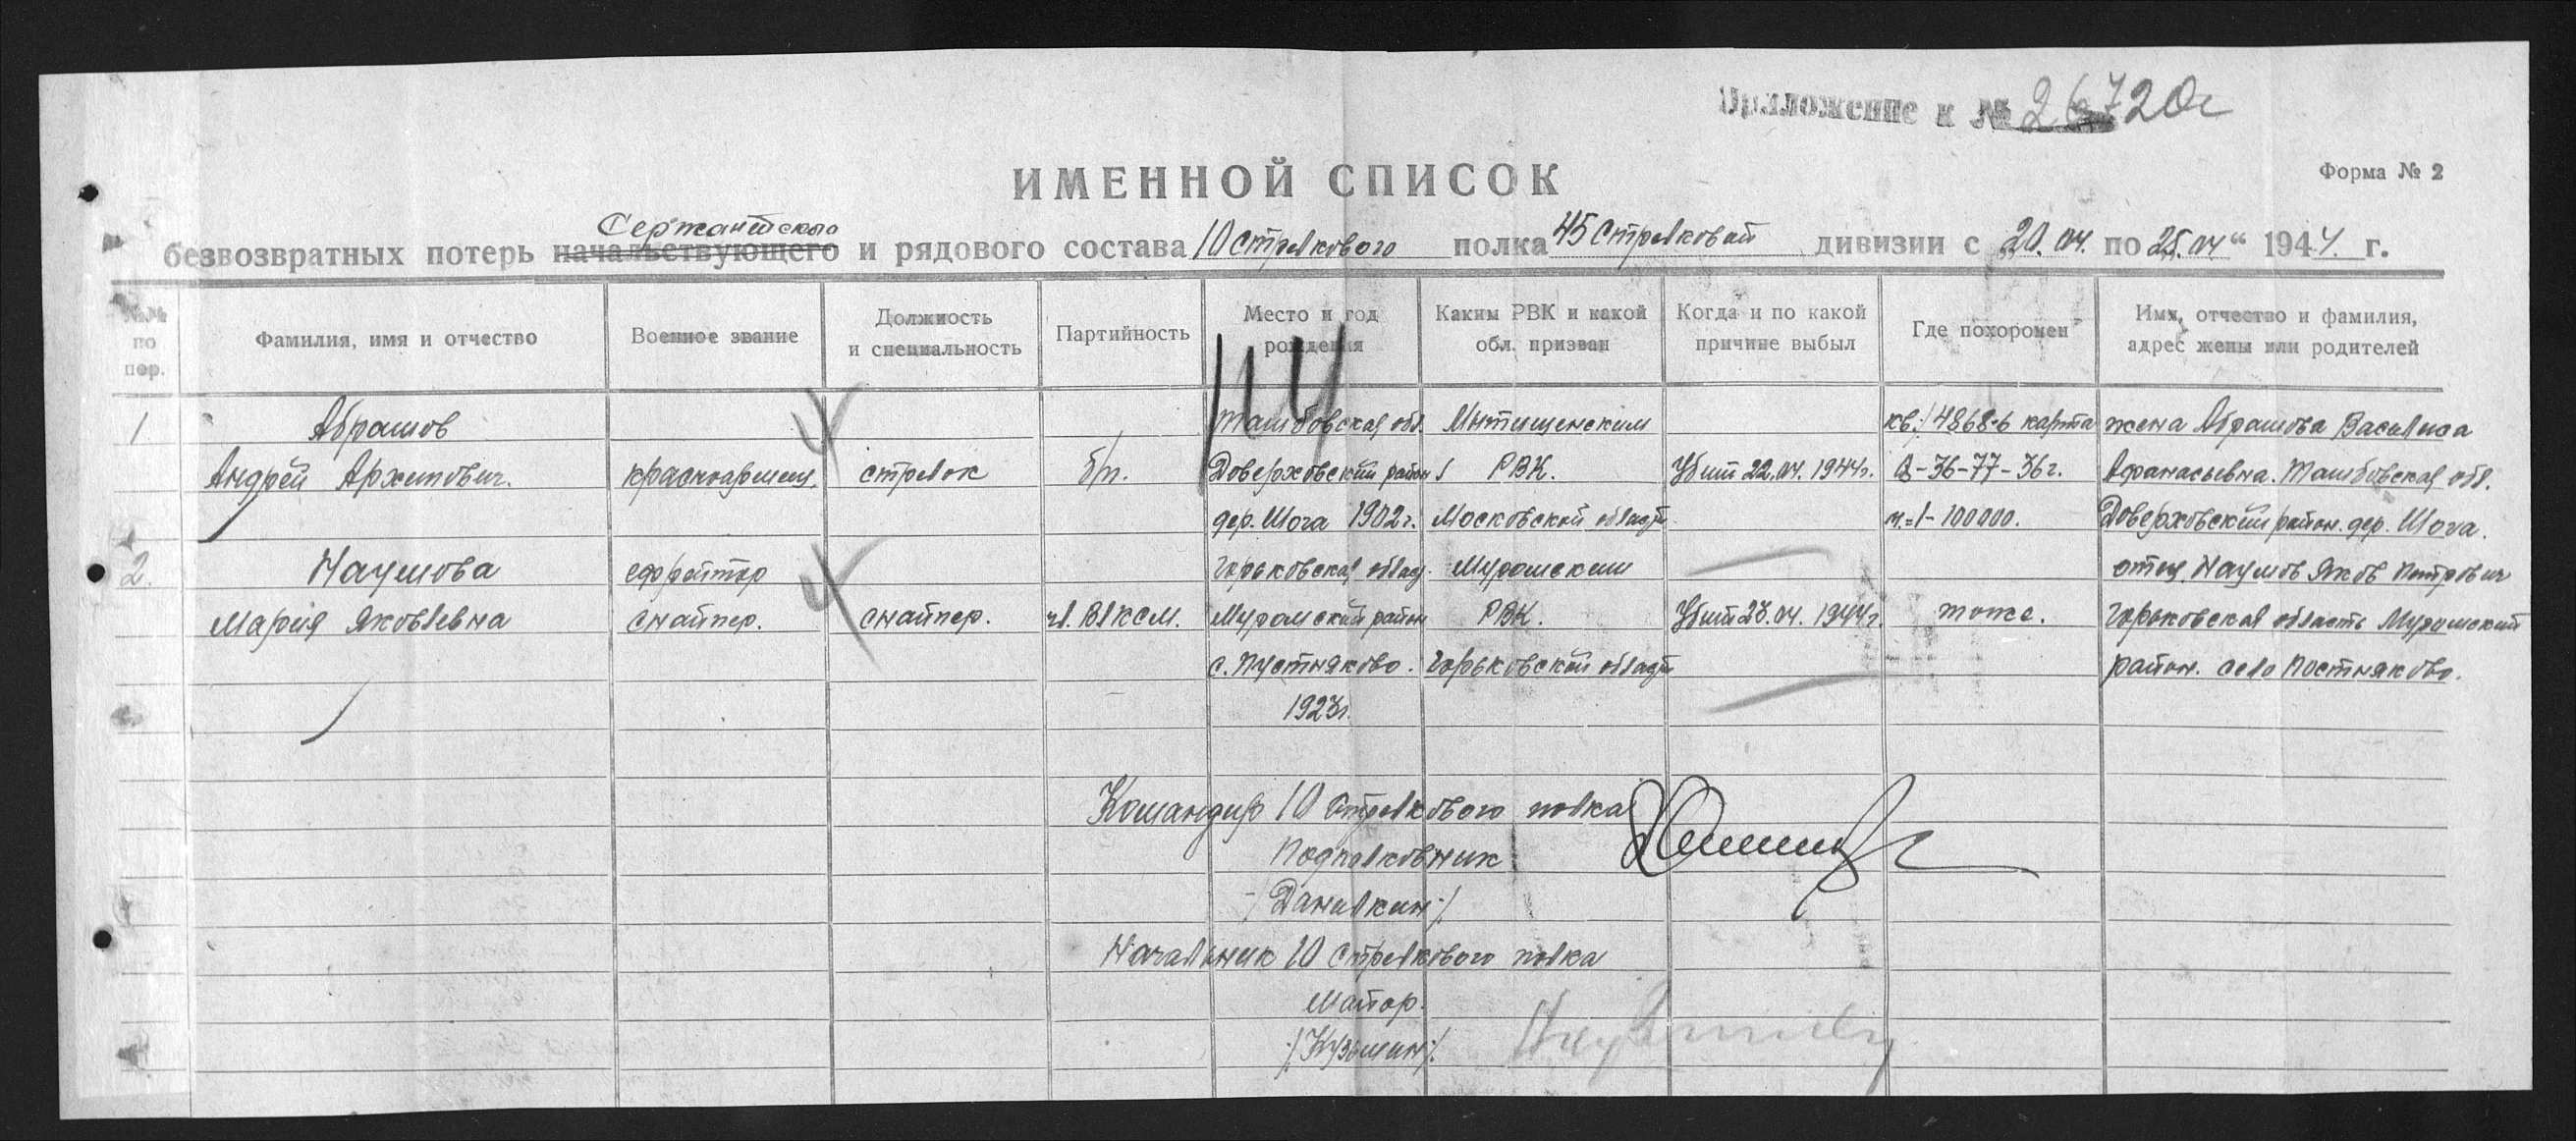 Приложение к № 26720с
ИМЕННОЙ СПИСОК
Форма № 2
Сержантского
безвозвратных потерь начальствующего и рядового состава 10 Стрелкового полка 45 Стрелковой дивизии с „20.04. по 25.04“ 1944. г.
№№ по пор.
Фамилия, имя и отчество
Военное звание
Должность и специальность
Партийность
Место и год рождения
Каким РВК и какой обл. призван
Когда и по какой причине выбыл
Где похоронен
Имя, отчество и фамилия, адрес жены или родителей
114
1 Абрамов Тамбовская обл. Мытищенским кв:/4868-б карта жена Абрамова Василиса
Андрей Архипович. красноармеец. стрелок б/п. Доверховский район РВК. Убит 22.04.1944г. Q-36-77-36г. Афанасьевна. Тамбовская обл.
дер. Шога 1902г. Московской области м.=1-100000. Доверховский район. дер. Шога.
2. Наумова ефрейтор Горьковская облас. Муромским отец Наумов Яков Петрович
Мария Яковлевна снайпер. снайпер. чл. ВЛКСМ. Муромский район РВК. Убит 23.04.1944г. тоже. Горьковская область Муромский
с. Пустняково. Горьковской области район. село Постняково.
1923г.
Командир 10 Стрелкового полка
Подполковник
/Данилкин/
Начальник 10 Стрелкового полка
Майор.
/Кузьмин/